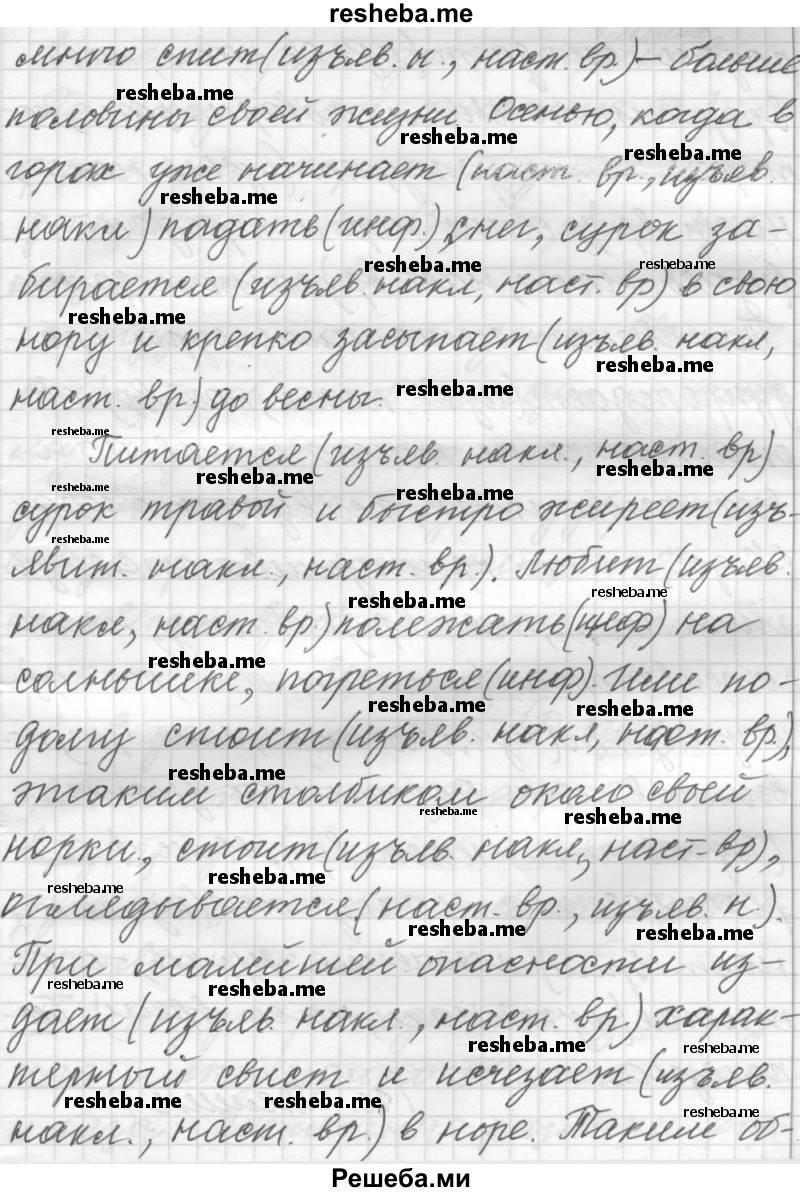 resheba.me
много спит (изъяв. н., наст. вр.) – больше
половины своей жизни. Осенью, когда в
горах уже начинает (наст. вр., изъяв.
накл) падать (инф.) снег, сурок за-
бирается (изъяв. накл, наст. вр) в свою
нору и крепко засыпает (изъяв. накл,
наст. вр.) до весны.
Питается (изъяв. накл., наст. вр)
сурок травой и быстро жиреет (изъ-
явит. накл., наст. вр.). Любит (изъяв.
накл, наст. вр.) полежать (инф) на
солнышке, погреться (инф). Или по-
долгу стоит (изъяв. накл, наст. вр.),
этаким столбиком около своей
норки, стоит (изъяв. накл, наст. вр),
оглядывается (наст. вр., изъяв. н.).
При малейшей опасности из-
дает (изъяв. накл., наст. вр.) харак-
терный свист и исчезает (изъяв.
накл., наст. вр.) в норе. Таким об-
Решеба.ми